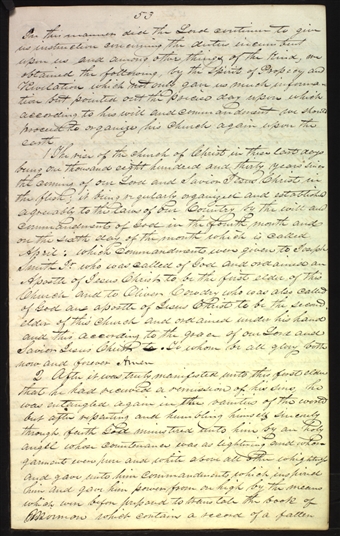 53
In this manner did the Lord continue to give
us instruction concerning the duties incumbent
upon us and among other things of the kind, we
obtained the following, by the Spirit of Propecy and
Revelation which not only gave us much informa-
tion but pointed out the precise day upon which
according to his will and commandment, we should
proceed to organize his church again upon the
earth
1 The rise of the church of Christ in these last days
being one thousand eight hundred and thirty years since
the coming of our Lord and Savior Jesus Christ in
the flesh, it being regularly organized and established
agreeably to the laws of our Country by the will and
commandments of God in the fourth month and
on the sixth day of the month which is called
April: which commandments were given to Joseph
Smith Jr who was called of God and ordained an
Apostle of Jesus Christ to be the first elder of this
Church and to Oliver Cowdery who was also called
of God an apostle of Jesus Christ to be the second
elder of this Church and ordained under his hand
and this according to the grace of our Lord and
Savior Jesus Christ to whom be all glory both
now and forever. Amen
2 After it was truly manifested unto this first elder
that he had received a remission of his sins, he
was entangled again in the vanities of the world
but after repenting and humbling himself sincerely
through faith God ministered unto him by an holy
angel whose countenance was as lightning and whose
garments were pure and white above all other whiteness
and gave unto him commandments which inspired
him and gave him power from on high by the means
which were before prepared to translate the book of
Mormon which contains a record of a fallen